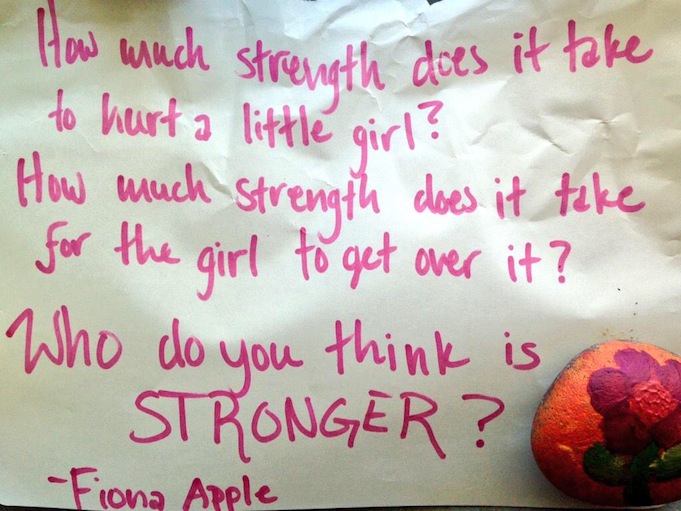 How much strength does it take
to hurt a little girl?
How much strength does it take
for the girl to get over it?
Who do you think is
STRONGER?
-Fiona Apple